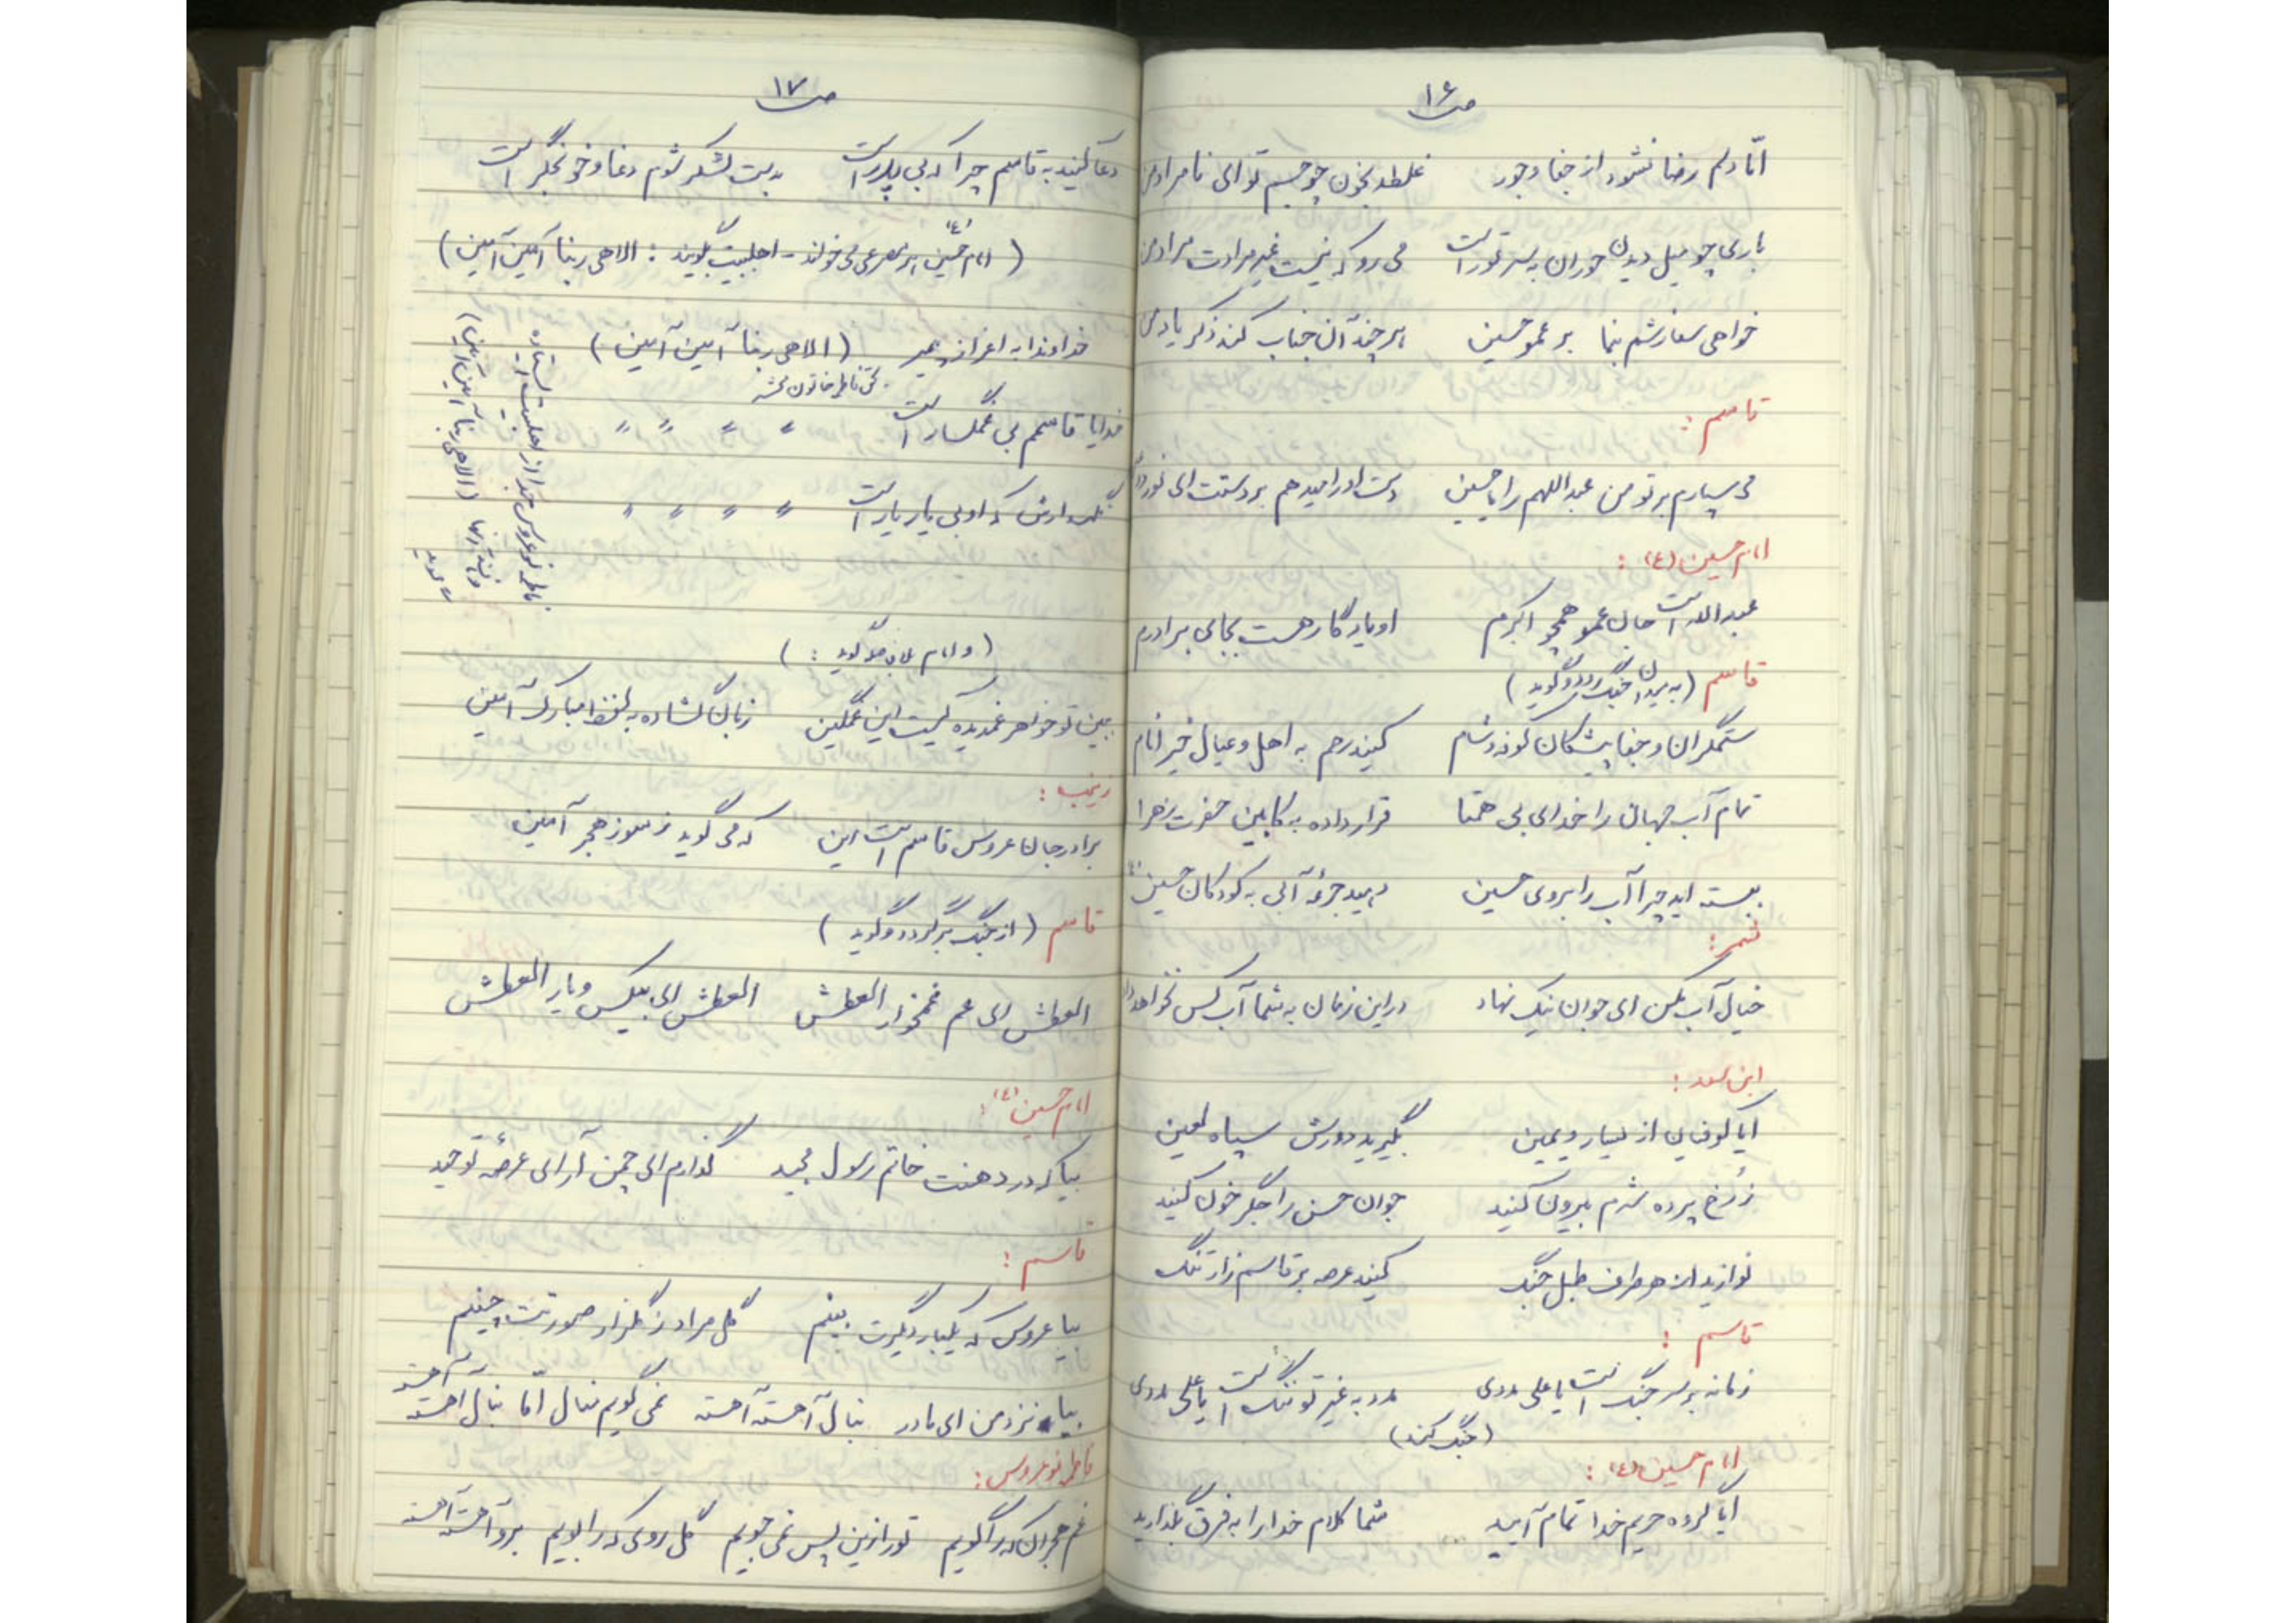 ص ۱۶
امّا دلم رضا نشود از جفا و جور غلطد بخون چو جسم تو ای نامراد من
باری چو میل دیدن حوران بسر تو راست می رو که نیست غیر مرادت مراد من
خواهی سفارشم بنما بر عمو حسین هر چند آن جناب کند ذکر یاد من
قاسم :
می سپارم بر تو من عبداللهم را یا حسین دست او را میدهم بر دستت ای نور
امام حسین (ع) :
عبدالله است جان عمو همچو اکبرم او یادگار هست بجای برادرم
قاسم (به میدان جنگ رود و گوید)
ستمگران و جفا پیشگان کوفه و شام کنید رحم به اهل و عیال خیر انام
تمام آب جهان را خدای بی همتا قرار داده به کابین حضرت زهرا
بسته اید چرا آب را بروی حسین دهید جرعه آبی به کودکان حسین
شمر :
خیال آب مکن ای جوان نیک نهاد در این زمان به شما آب کس نخواهد داد
ابن سعد :
ایا کوفیان از یسار و یمین بگیرید دورش سپاه لعین
ز رخ پرده شرم بیرون کنید جوان حسن را جگر خون کنید
نوازید از هر طرف طبل جنگ کنید عرصه بر قاسم زار تنگ
قاسم :
زمانه بر سر جنگ است یا علی مددی مدد به غیر تو ننگ است یا علی مددی
(جنگ کند)
امام حسین (ع) :
ایا گروه حریم خدا تمام آیید شما کلام خدا را به فرق بگذارید
ص ۱۷
دعا کنید به قاسم چرا که بی پدر است به دست لشکر شوم دغا و خونجگر است
(امام حسین (ع) هر مصرعی می خواند - اهلبیت بگویند : الاهی ربنا آمین آمین)
خداوندا به اعزاز پیمبر (الاهی ربنا آمین آمین)
بحق فاطمه خاتون محشر
خدایا قاسمم بی غمگسار است " " " "
نگهدارش که او بی یار یار است " " " "
فاطمه نو عروس جدا از اهلبیت ایستاده
و تنها (الاهی ربنا آمین آمین)
می گوید
(و امام گوید :)
ببین تو خواهر غمدیده کیست این غمگین زبان گشاده به لفظ مبارک آمین
زینب :
برادر جان عروس قاسم است این که می گوید ز سوز هجر آمین
قاسم (از جنگ برگردد و گوید)
العطش ای عم غمخوار العطش العطش ای بیکس و یار العطش
امام حسین (ع) :
بیا که در دهنت خاتم رسول مجید گذارم ای چمن آرای عرصهٔ توحید
قاسم :
بیا عروس که یکبار دیگرت بینم گل مراد ز گلزار صورتت چینم
بیا نزد من ای مادر بنال آهسته آهسته نمی گویم منال امّا بنال آهسته آهسته
فاطمه نو عروس :
غم هجران که را گویم تو را زین پس نمی جویم گل روی که را بویم برو آهسته آهسته